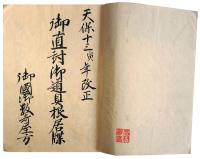 天保十三寅年改正
御直討御道具根居牒
御國御数寄屋方